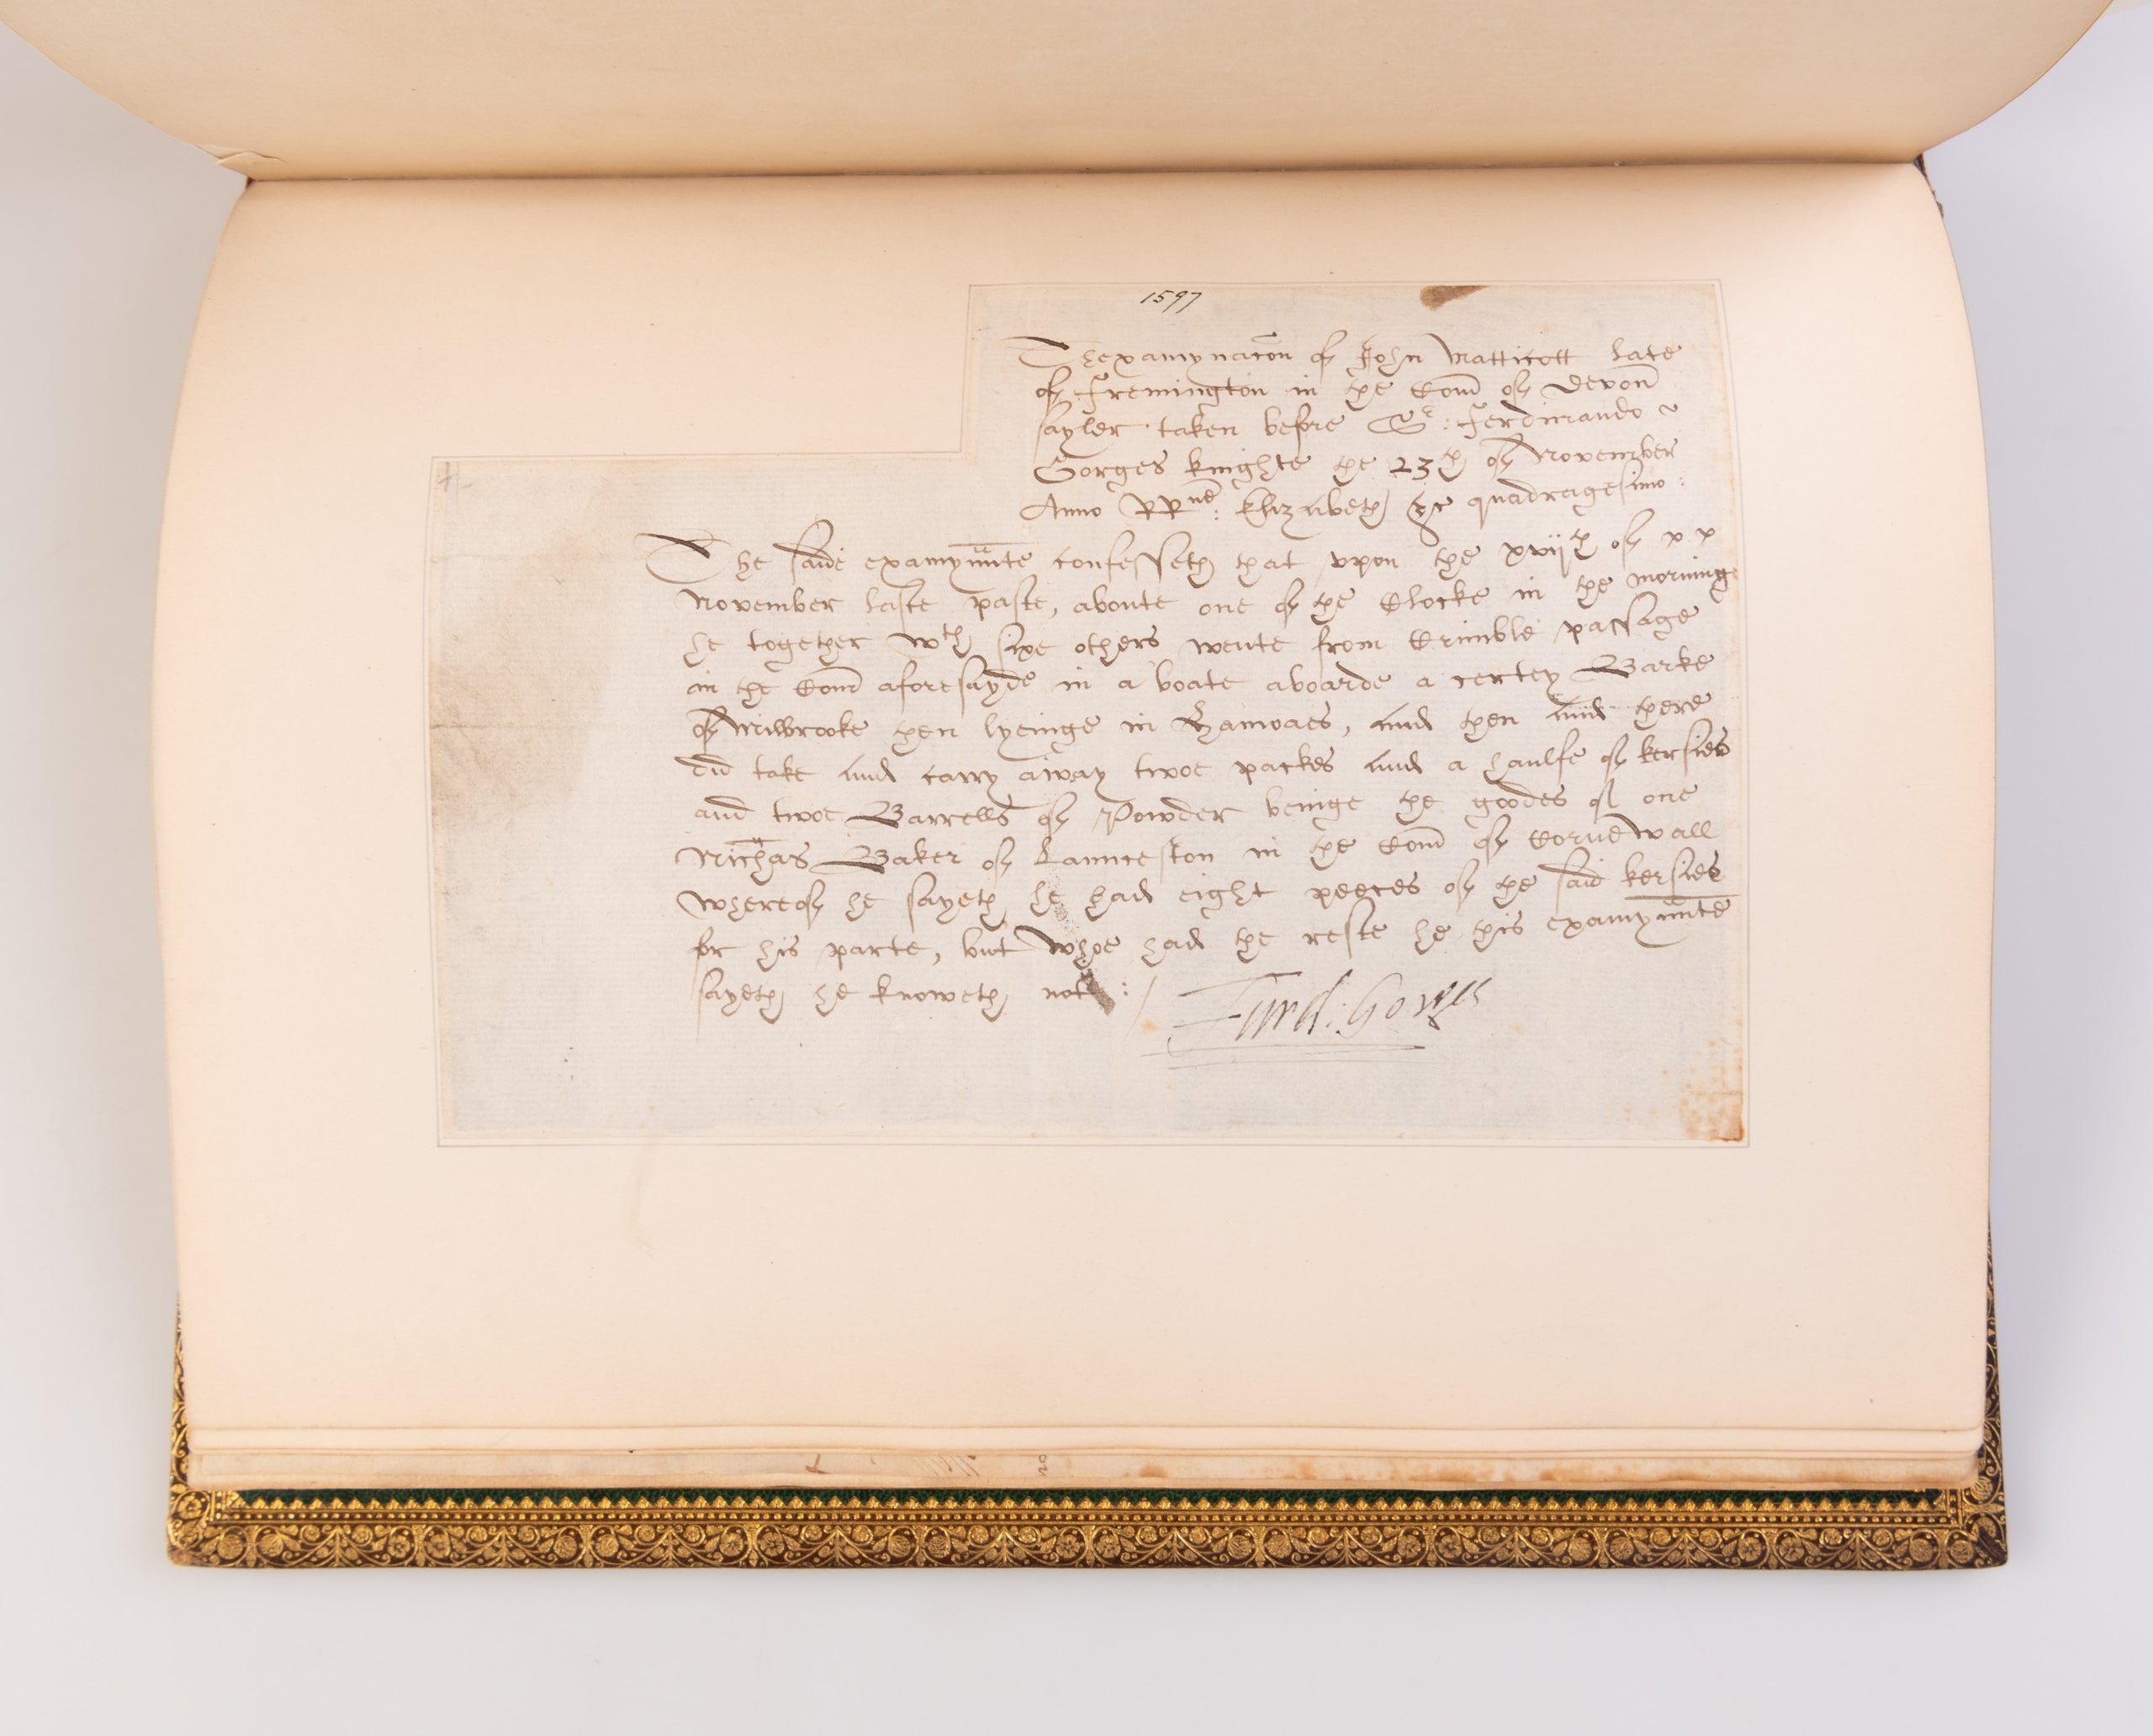 1597
Thexamynacōn of John Matticott late
of Fremington in the Com̄ of Devon̄
sayler taken before Sr: Ferdinando
Gorges knighte the 23th of November
Anno RRne: Elizabeth &c quadragesimo:
The saide examynnte confesseth that vpon the xviith of
November laste paste, aboute one of the Clocke in the morninge
he together wth sixe others wente from Crimble passage
in the Com̄ aforesayde in a boate aboarde a certey Barke
of Milbrooke then lyeinge in Hamoaes, And then And there
did take And carry away twoe packes And a haulfe of kersies
and twoe Barrells of Powder beinge the goodes of one
Nichas Baker of Launceston in the Com̄ of Cornewall
whereof he sayeth he had eight peeces of the said kersies
for his parte, but whoe had the reste he this examynnte
sayeth he knoweth not:/
Ferd: Gorges